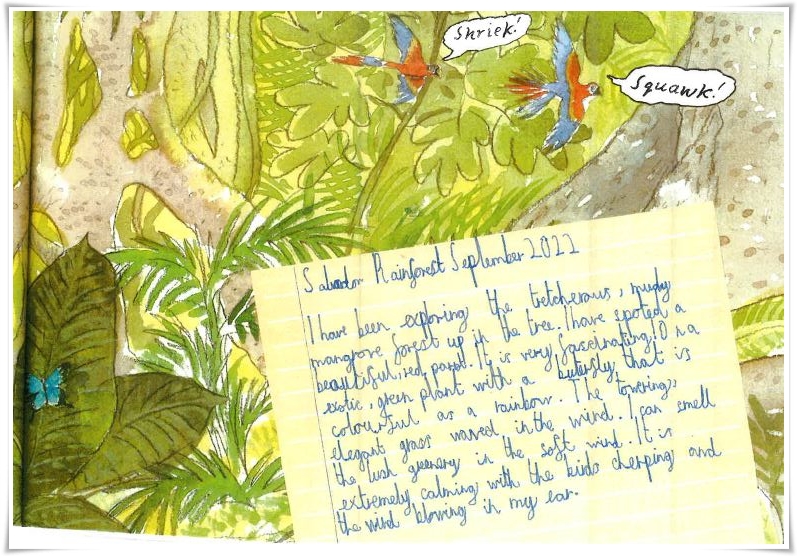 Shriek!
Squawk!
Salvador Rainforest September 2022
I have been exploring the tretcherous, mudy
mangrove forest up in the tree. I have spoted a
beautiful, red parrot. It is very fascinating! On a
exotic, green plant with a buterfly that is
colourful as a rainbow. The towering,
elegant grass waved in the wind. I can smell
the lush greenery in the soft wind. It is
extremely calming with the birds cherping and
the wind blowing in my ear.